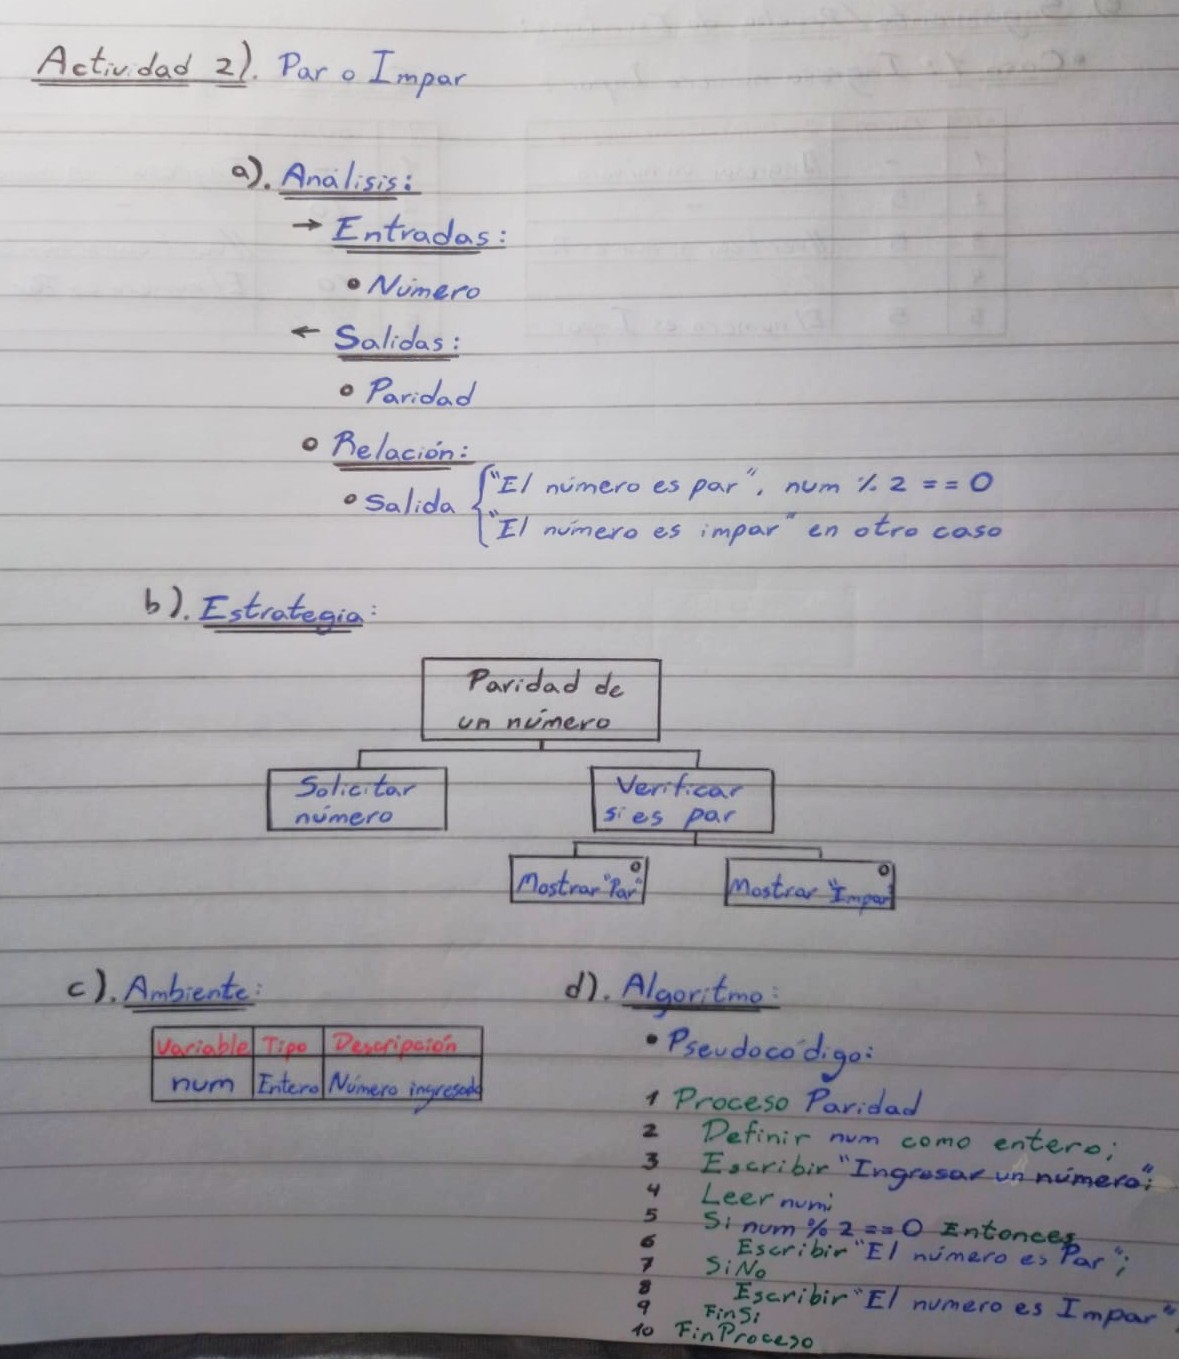 Actividad 2). Par o Impar
a). Análisis:
→ Entradas:
• Número
← Salidas:
• Paridad
• Relación:
• Salida { "El número es par", num % 2 == 0
"El número es impar" en otro caso
b). Estrategia:
Paridad de
un número
Solicitar
número
Verificar
si es par
Mostrar "Par"
Mostrar "Impar
c). Ambiente:
Variable Tipo Descripción
num Entero Número ingresado
d). Algoritmo:
• Pseudocódigo:
1 Proceso Paridad
2 Definir num como entero;
3 Escribir "Ingresar un número";
4 Leer num;
5 Si num % 2 == 0 Entonces
6 Escribir "El número es Par";
7 SiNo
8 Escribir "El numero es Impar"
9 FinSi
10 FinProceso